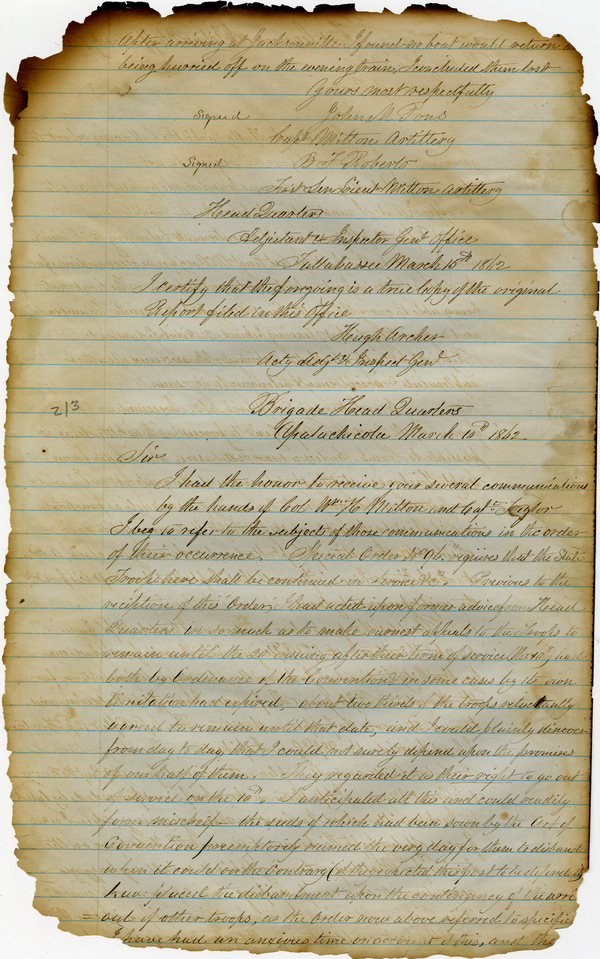 After arriving at Jacksonville I found no boat would return
being hurried off on the evening train, I concluded them lost
Yours most respectfully
Signed John M Pons
Capt Milton Artillery
Signed B F Roberts
First Sen Lieut Milton Artillery
Head Quarters
Adjutant & Inspector Genl Office
Tallahassee March 15th 1862
I certify that the foregoing is a true Copy of the original
Report filed in this Office
Hugh Archer
Acty Adjt & Inspect Genl
213
Brigade Head Quarters
Apalachicola March 10th 1862
Sir
I had the honor to receive your several communications
by the hands of Col Wm H Milton and Capt
I beg to refer to the subjects of those communications in the order
of their occurrence. Special Order No 96. requires that the State
Troops here shall be continued in service &c. Previous to the
reception of this Order, I had acted upon former advice from Head
Quarters in so much as to make earnest appeals to the Troops to
remain until the 20th after their term of service
both by Ordinance of the Convention in some cases by its own
limitation had expired, about two thirds of the troops reluctantly
agreed to remain until that date, and I could plainly discover
from day to day, that I could not surely depend upon the promises
of one half of them. They regarded it as their right to go out
of service on the 10th. I anticipated all this and could readily
mischief the seeds of which had been sown by the Act of
Convention peremptorily named the very day for them to disband
when it could on the Contrary this post to be
have placed the disbandment upon the contingency of
out of other troops, as the Order now above referred to specifies
I have had an anxious time on account of this, and the